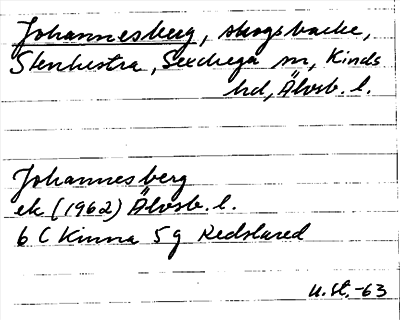 Johannesberg, skogsbacke,
Stenhestra, Sexdrega sn, Kinds
hd, Älvsb. l.
Johannesberg
ek (1962) Älvsb. l.
6 C Kinna 5 g Redslared
U. St. -63